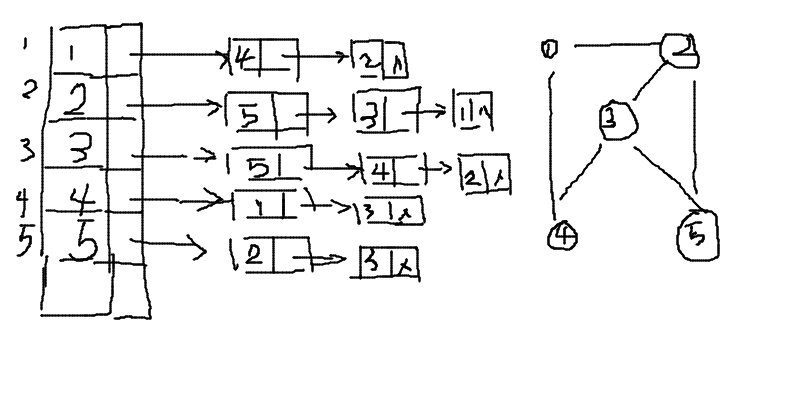 1 1 4 2 ^
2 2 5 3 1 ^
3 3 5 4 2 ^
4 4 1 3 ^
5 5 2 3 ^
1 2
3
4 5